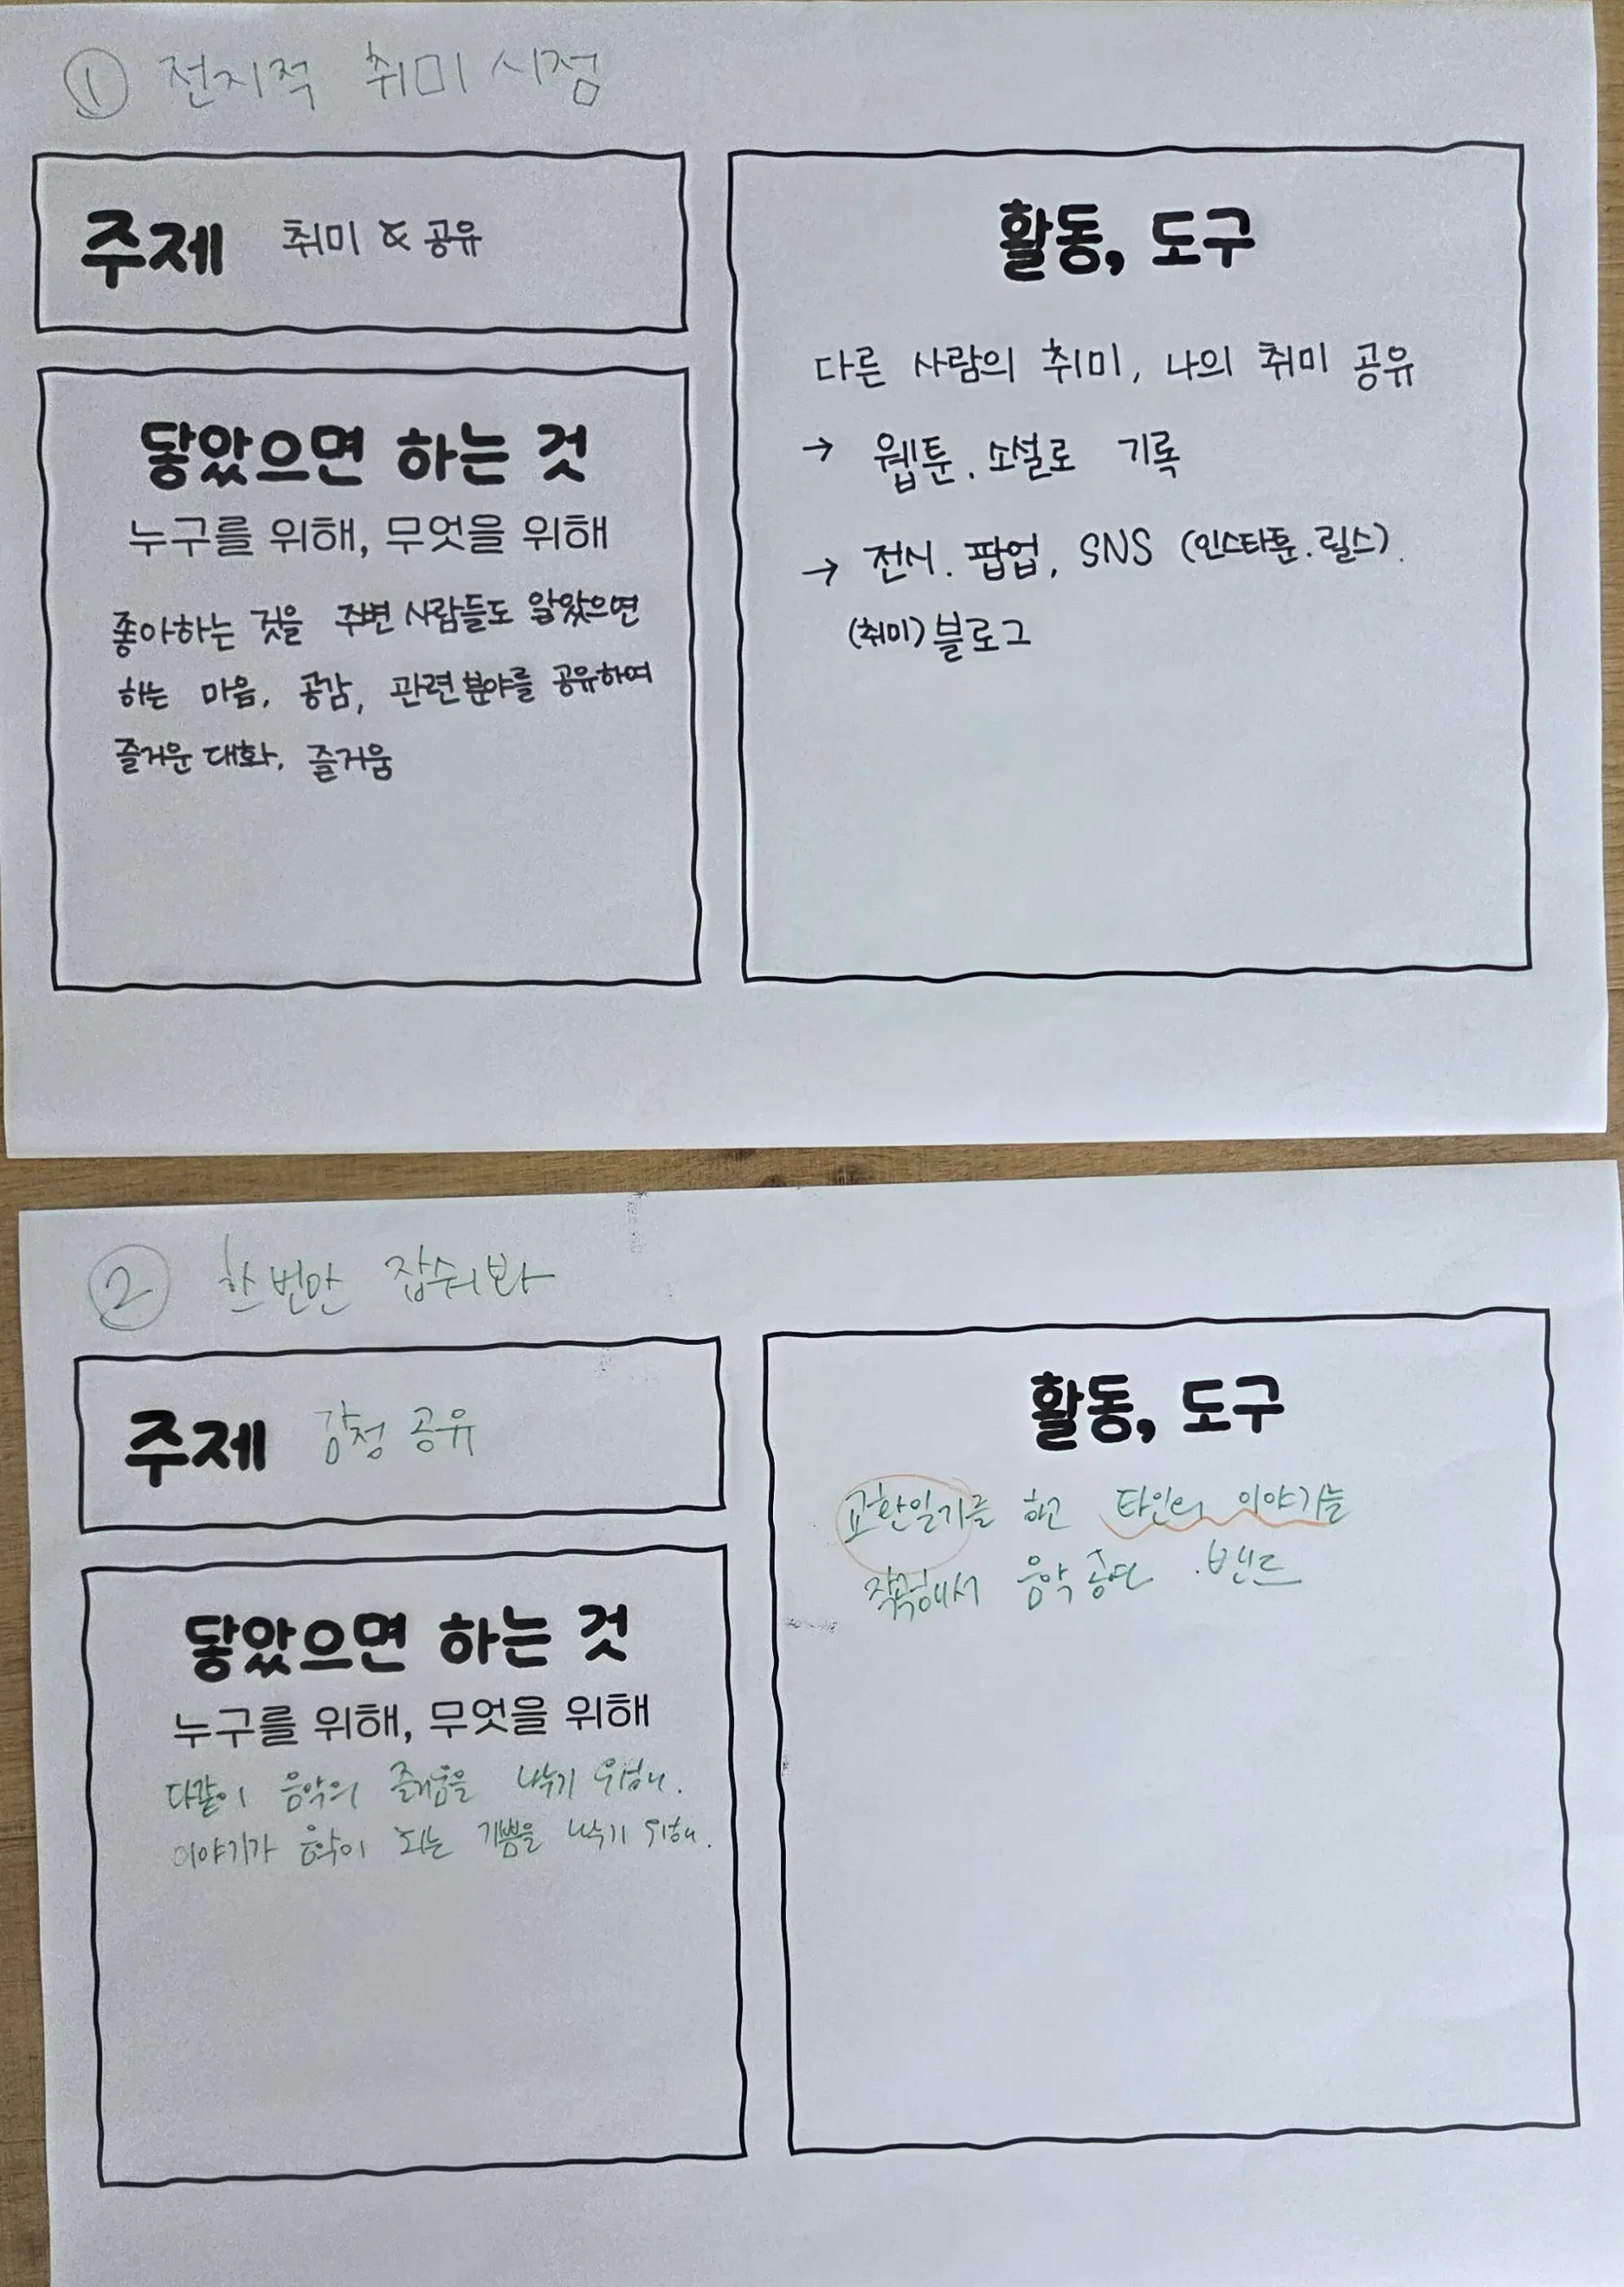 ① 전지적 취미 시점
주제 취미 & 공유
닿았으면 하는 것
누구를 위해, 무엇을 위해
좋아하는 것을 주변 사람들도 알았으면
하는 마음, 공감, 관련 분야를 공유하여
즐거운 대화, 즐거움
활동, 도구
다른 사람의 취미, 나의 취미 공유
→ 웹툰. 소설로 기록
→ 전시. 팝업, SNS (인스타툰. 릴스).
(취미) 블로그
② 한번만 잡숴봐
주제 감정 공유
닿았으면 하는 것
누구를 위해, 무엇을 위해
다같이 음악의 즐거움을 나누기 위해.
이야기가 음악이 되는 기쁨을 나누기 위해.
활동, 도구
교환일기를 하고 타인의 이야기를
작곡해서 음악 공연. 밴드